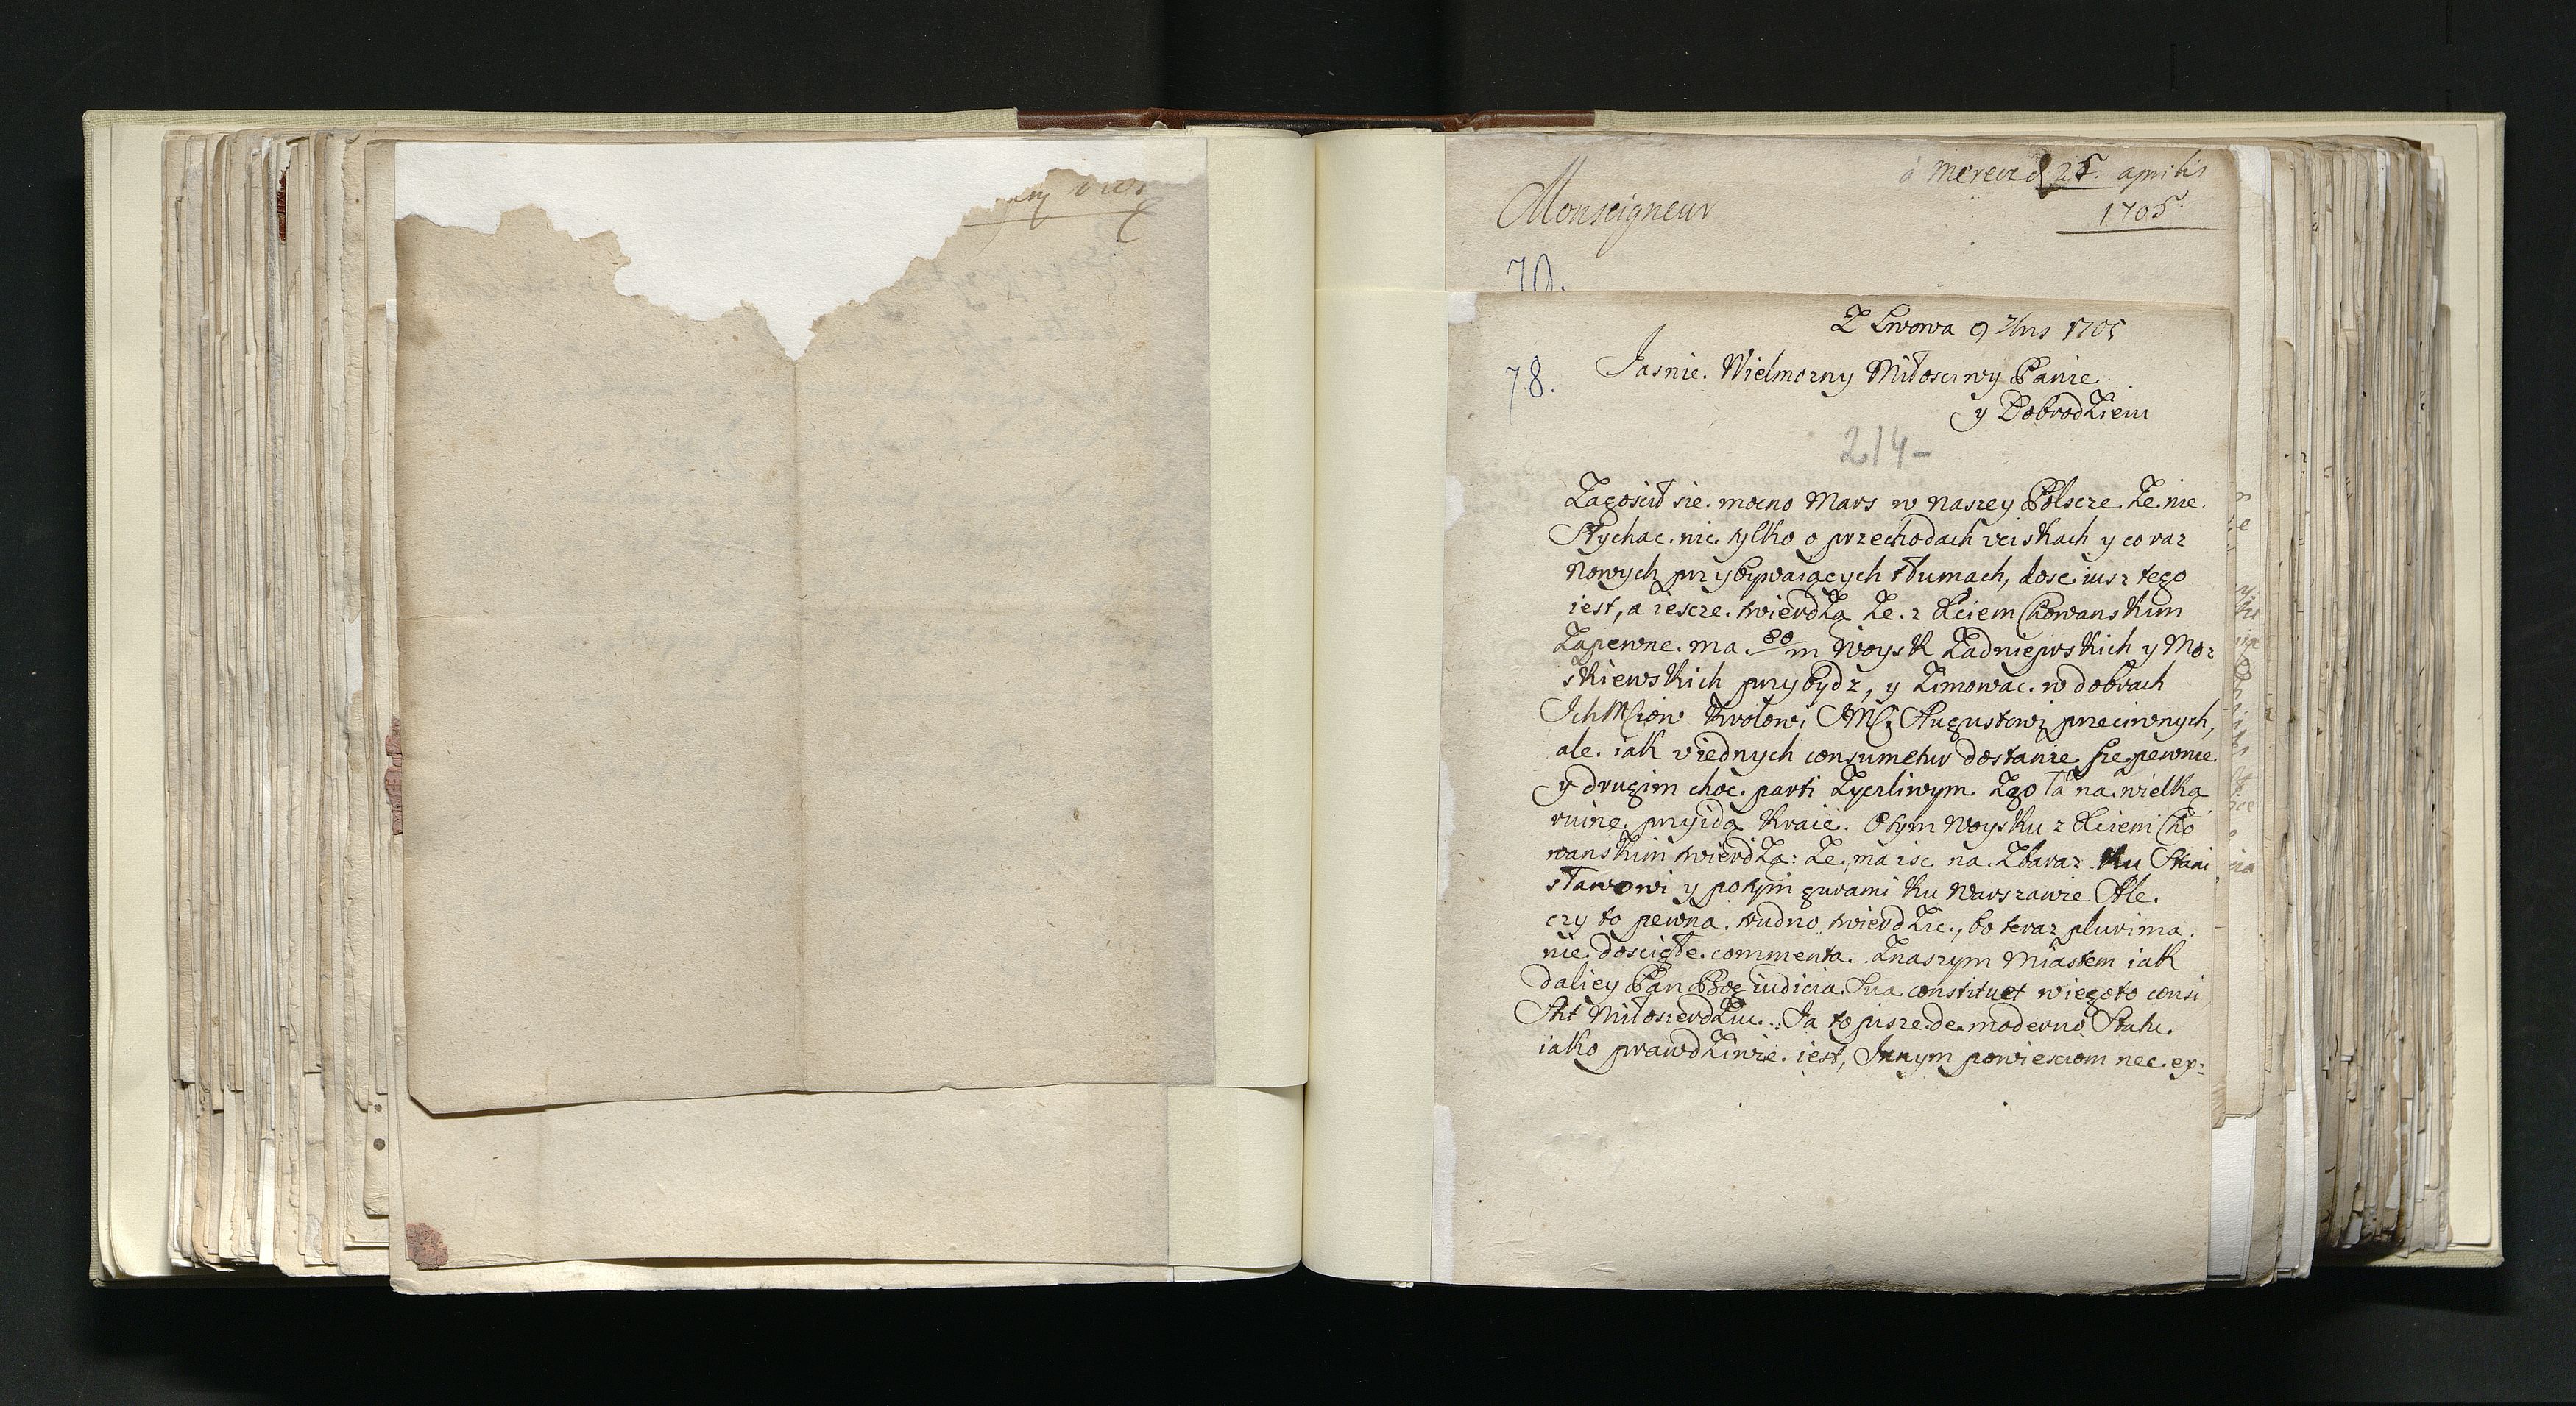 à Merecz d 25. aprilis
1705.
Monseigneur
Z Lwowa 9 7bris 1705
78.
Jasnie. Wielmozny Miłosciwy Panie
y Dobrodzieiu
214-
Zagoscił sie. mocno Mars w naszey Polscze. Ze. nie.
słychac. nic. tylko o przechodach vciskach y co raz
nowych przybywaiących tłumach, dosc iusz tego
iest, a iescze. twierdzą Ze. z Xciem Chowanskim
Zapewne. ma. 80/m woysk Zadnieprskich y Mo:
skiewskich przybydz, y Zimowac. w dobrach
Ich Mciow Krolowi JMci Augustowi przeciwnych,
ale. iak v iednych consumetur dostanie. sie. pewnie
y drugim choc. parti Zyczliwym Zgoła na. wielką
ruine. przyidą Kraie. O tym woysku z Xciem Cho
wanskim twierdzą: Ze. ma isc. na. Zbaraz ku Stani
sławowi y potym gurami ku Warszawie Ale.
czy to pewna. trudno twierdzic., bo teraz plurima.
nie. doscigłe. commenta. Z naszym Miastem iak
daliey Pan Bog iudicia. Sua constituet w iego to consi
stit Miłosierdziu. Ja to pisze. de. moderno Statu.
iako prawdziwie. iest, Innym powiesciom nec. ex: